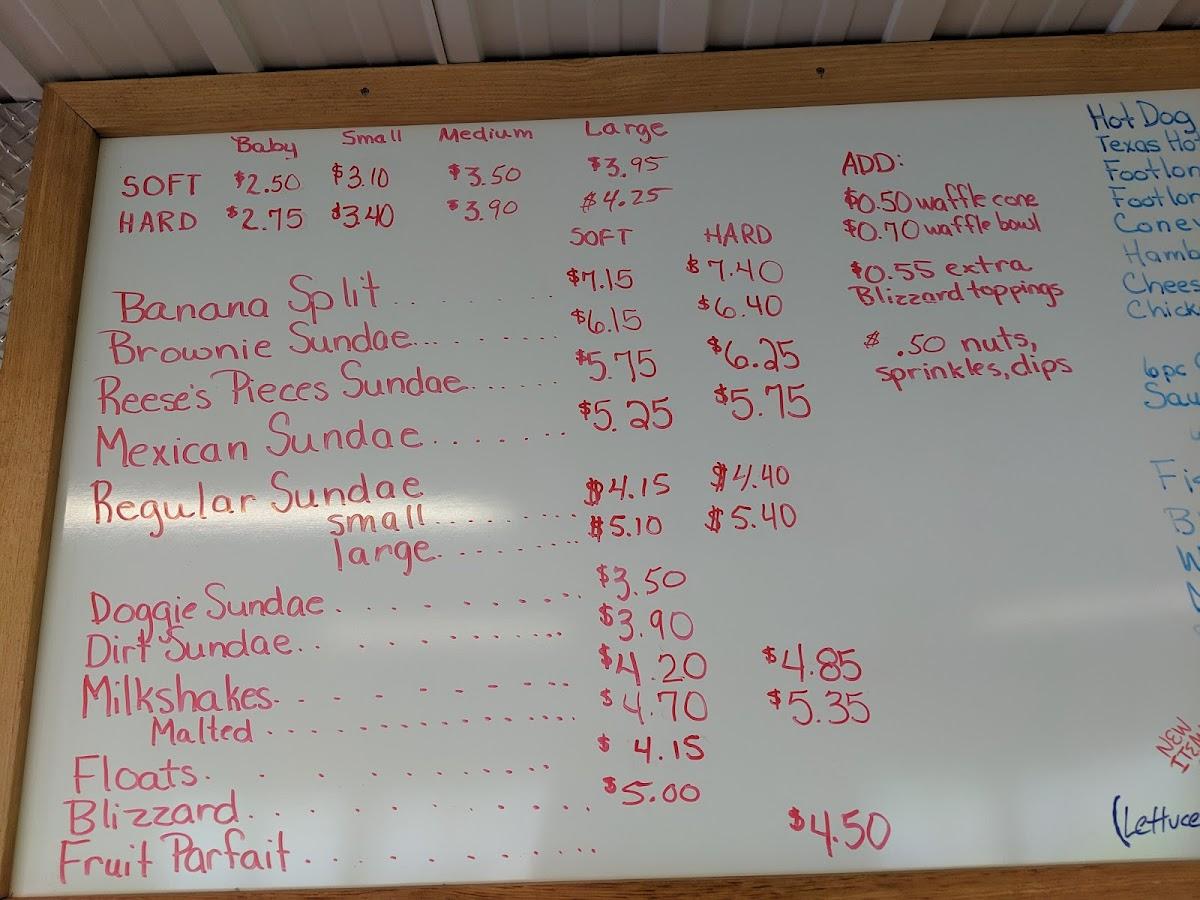 Baby Small Medium Large
SOFT $2.50 $3.10 $3.50 $3.95
HARD $2.75 $3.40 $3.90 $4.25
SOFT HARD
Banana Split $7.15 $7.40
Brownie Sundae $6.15 $6.40
Reese's Pieces Sundae $5.75 $6.25
Mexican Sundae $5.25 $5.75
Regular Sundae
small $4.15 $4.40
large $5.10 $5.40
Doggie Sundae $3.50
Dirt Sundae $3.90
Milkshakes $4.20 $4.85
Malted $4.70 $5.35
Floats $4.15
Blizzard $5.00
Fruit Parfait $4.50
ADD:
$0.50 waffle cone
$0.70 waffle bowl
$0.55 extra
Blizzard toppings
$ .50 nuts,
sprinkles, dips
Hot Dog
Texas Ho
Footlon
Footlon
Coney
Hamb
Chees
Chick
6pc
Sau
NEW
ITEM
(Lettuce